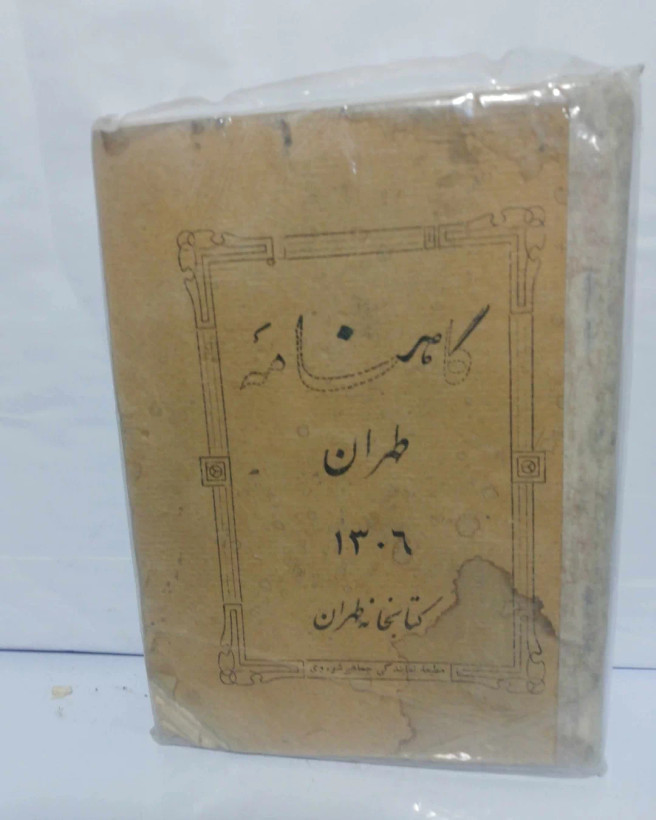 گاهنامهٔ
طهران
۱۳۰۶
کتابخانه طهران
مطبعه